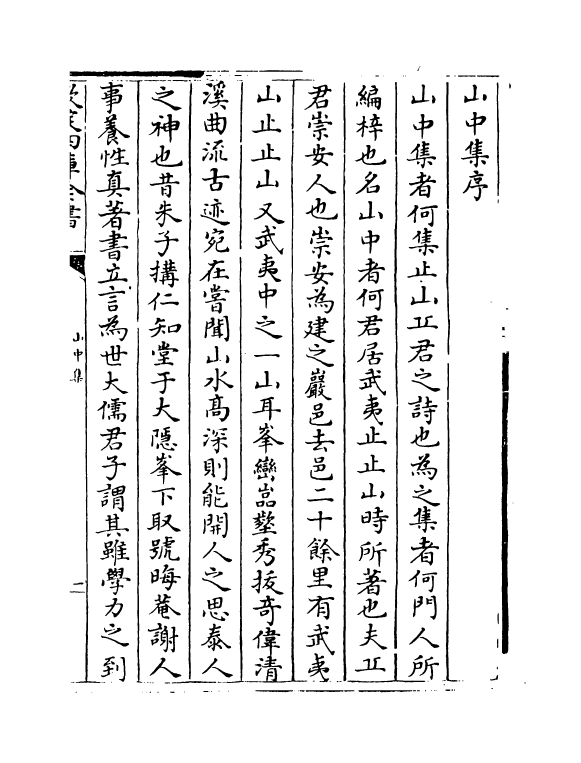 山中集序
山中集者何集止山丘君之詩也為之集者何門人所
編梓也名山中者何君居武夷止止山時所著也夫丘
君崇安人也崇安為建之巖邑去邑二十餘里有武夷
山止止山又武夷中之一山耳峯巒嵓壑秀拔奇偉清
溪曲流古迹宛在嘗聞山水髙深則能開人之思泰人
之神也昔朱子搆仁知堂于大隱峯下取號晦菴謝人
事養性真著書立言為世大儒君子謂其雖學力之到
欽定四庫全書
山中集
二